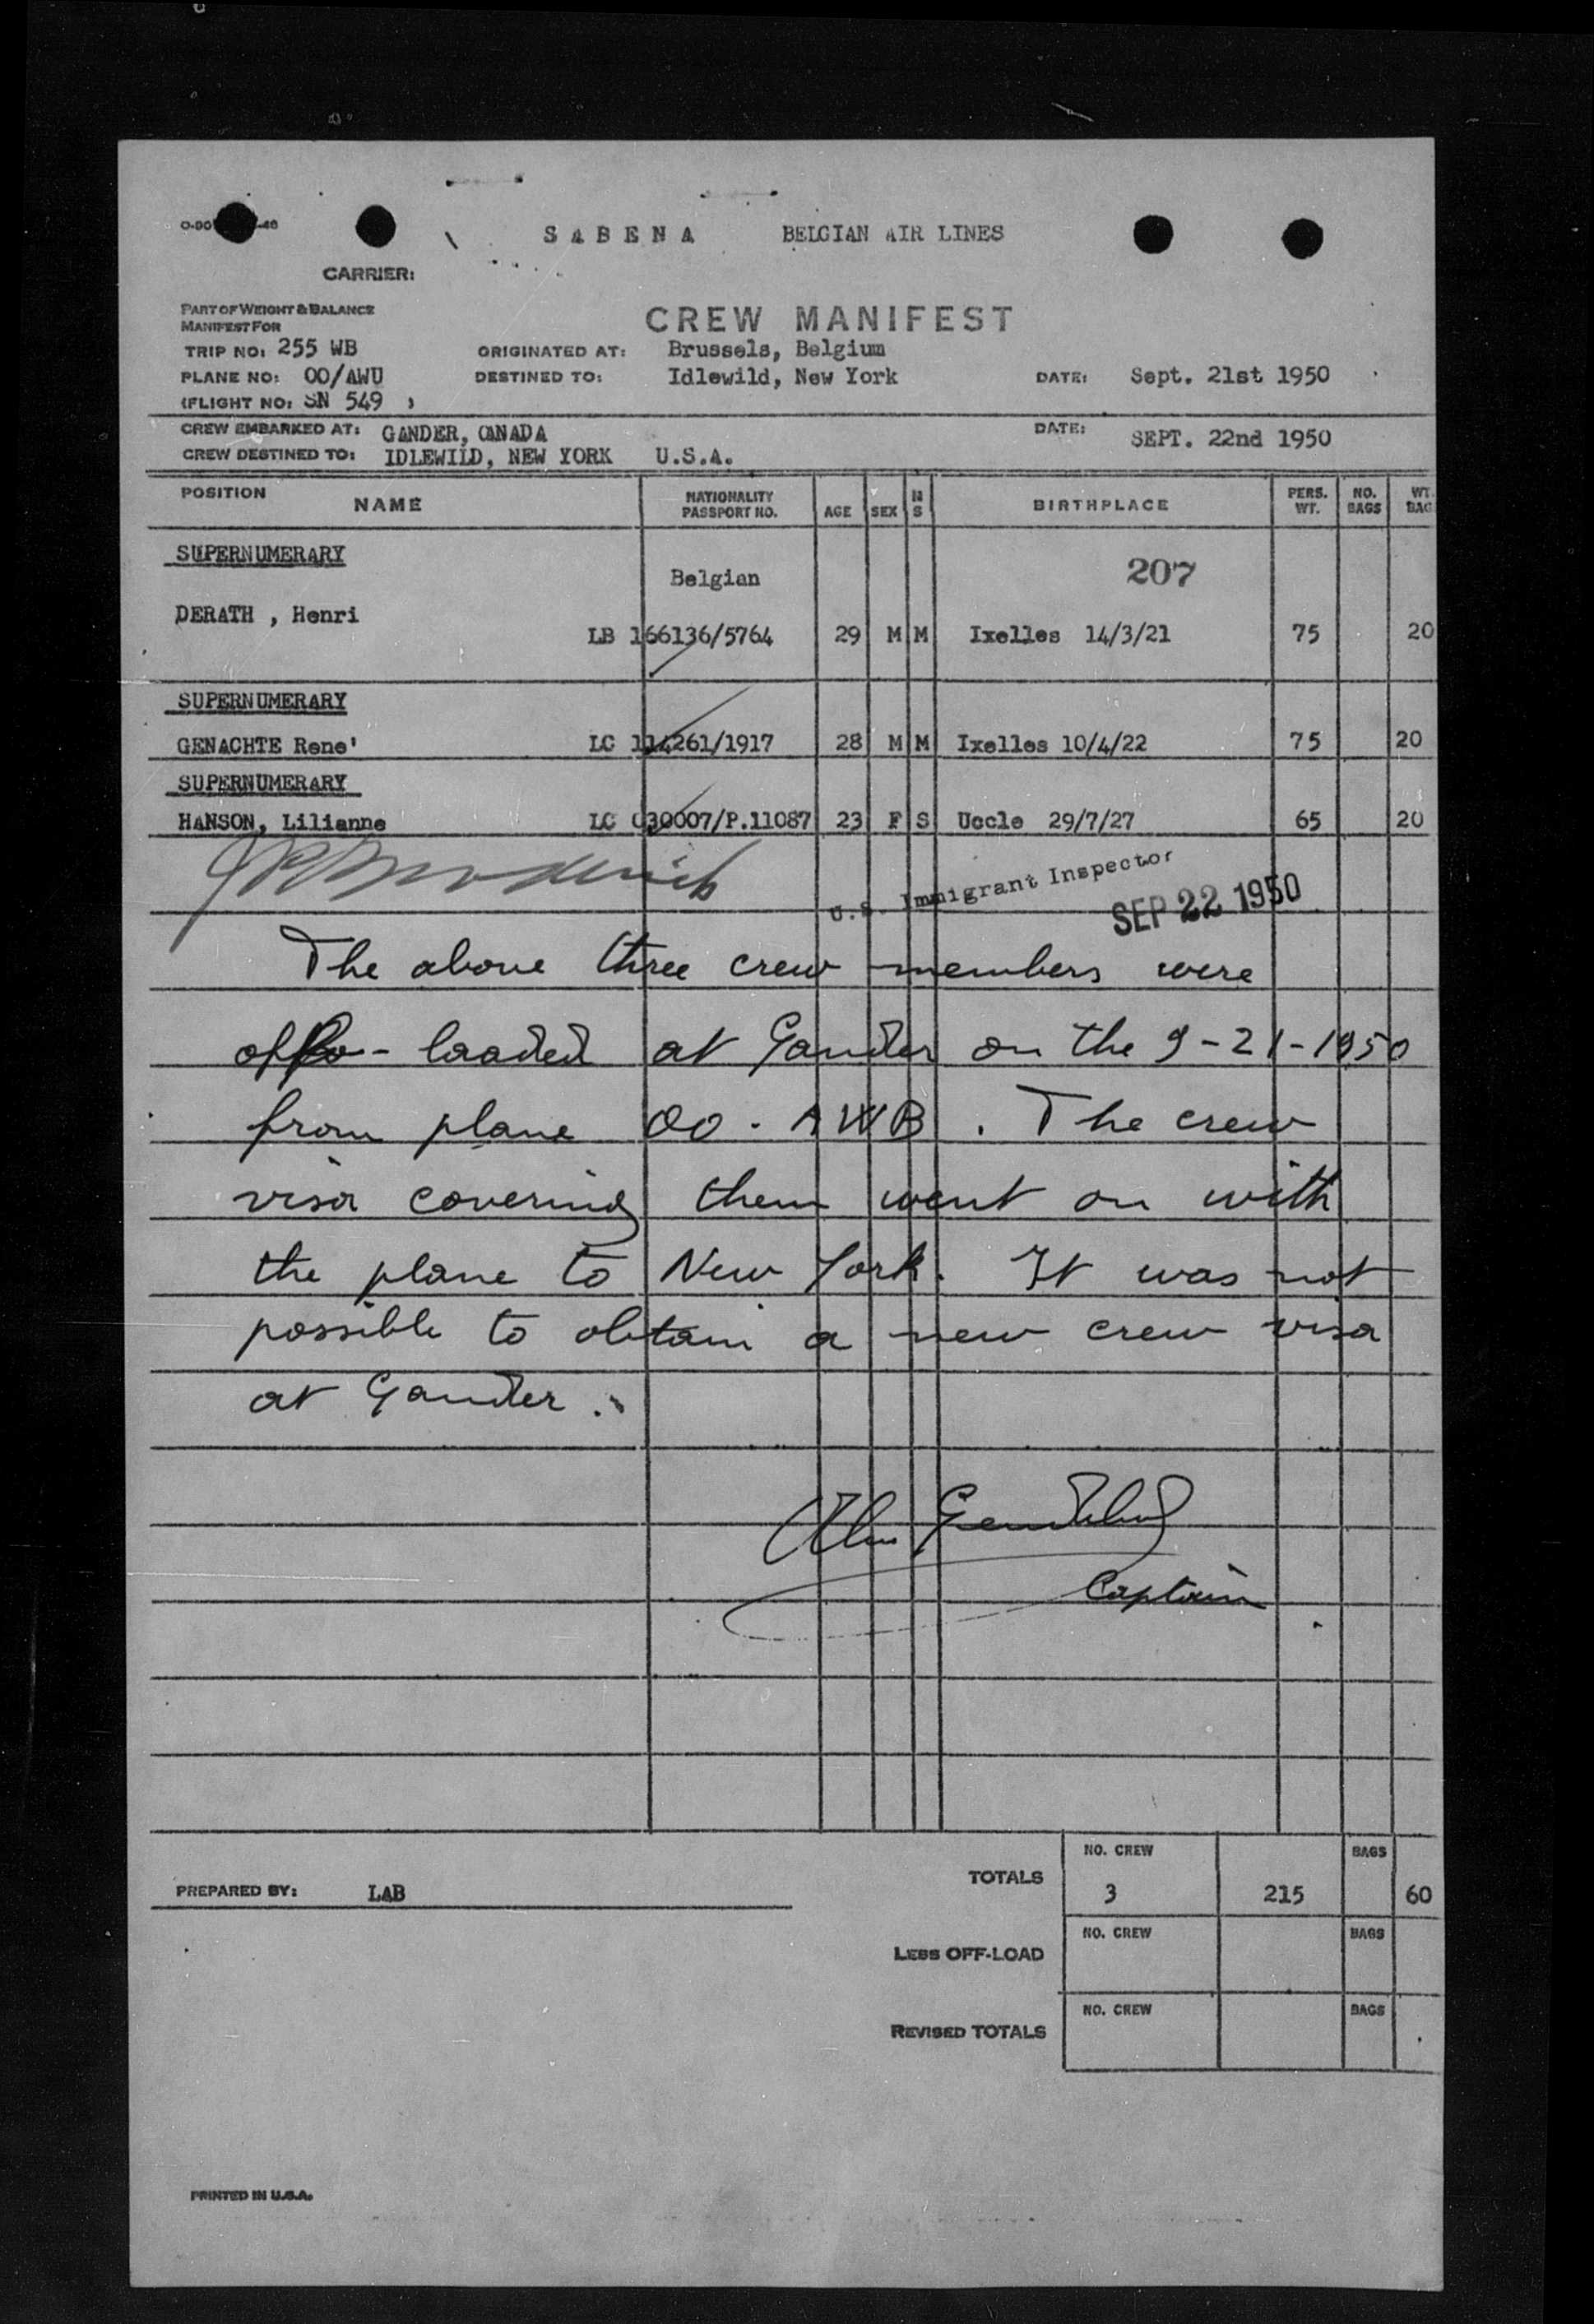 SABENA BELGIAN AIR LINES
CARRIER:
PART OF WEIGHT & BALANCE
MANIFEST FOR
CREW MANIFEST
TRIP NO: 255 WB ORIGINATED AT: Brussels, Belgium
PLANE NO: OO/AWU DESTINED TO: Idlewild, New York DATE: Sept. 21st 1950
(FLIGHT NO: SN 549 )
CREW EMBARKED AT: GANDER, CANADA DATE: SEPT. 22nd 1950
CREW DESTINED TO: IDLEWILD, NEW YORK U.S.A.
POSITION NAME NATIONALITY PASSPORT NO. AGE SEX M S BIRTHPLACE PERS. WT. NO. BAGS WT. BAG
SUPERNUMERARY
Belgian 207
DERATH , Henri LB 166136/5764 29 M M Ixelles 14/3/21 75 20
SUPERNUMERARY
GENACHTE Rene' LC 114261/1917 28 M M Ixelles 10/4/22 75 20
SUPERNUMERARY
HANSON, Lilianne LC 030007/P.11087 23 F S Uccle 29/7/27 65 20
U.S. Immigrant Inspector
SEP 22 1950
The above three crew members were
off - loaded at Gander on the 9-21-1950
from plane OO. AWB . The crew
visa covering them went on with
the plane to New York. It was not
possible to obtain a new crew visa
at Gander .
Captain
TOTALS NO. CREW 3 215 BAGS 60
PREPARED BY: LAB
LESS OFF-LOAD NO. CREW BAGS
REVISED TOTALS NO. CREW BAGS
PRINTED IN U.S.A.